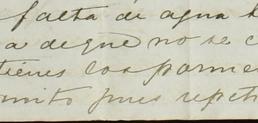 falta de agua
a de que no se c
tienes los porme
mito pues repeti